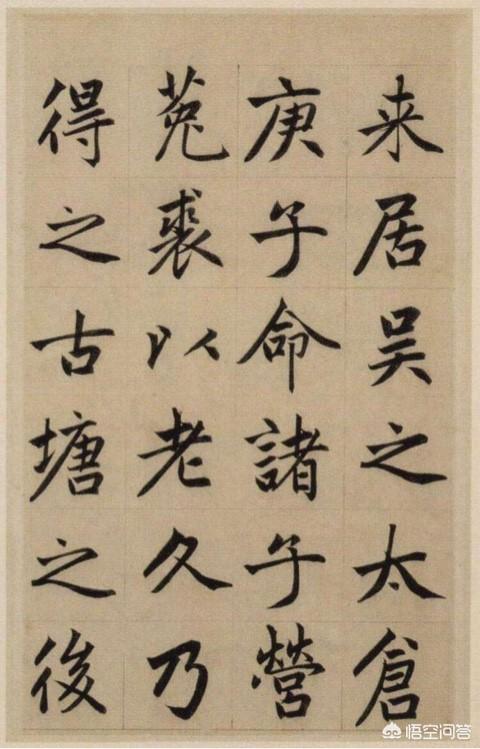 来居吴之太倉
庚子命諸子營
菟裘以老久乃
得之古塘之後
悟空问答